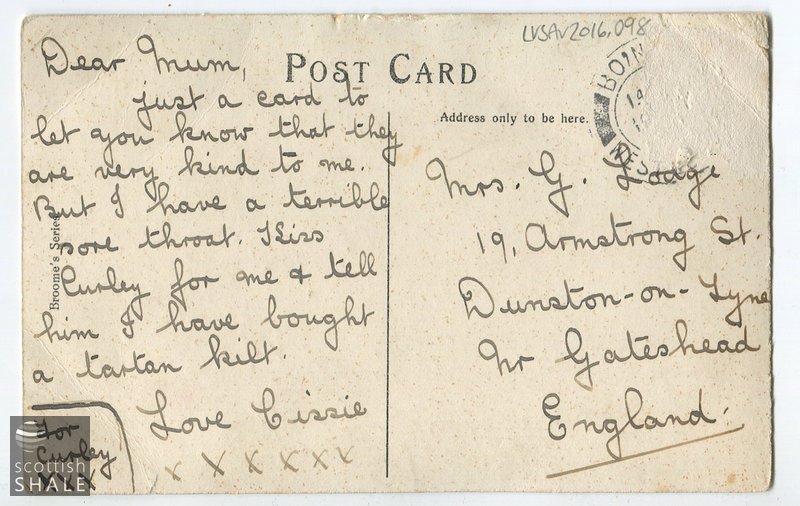 LVSAV2016.098
POST CARD
Address only to be here.
Dear Mum,
just a card to
let you know that they
are very kind to me.
But I have a terrible
sore throat. Kiss
Curley for me & tell
him I have bought
a tartan kilt.
Love Cissie
x x x x x x
For
Curley
XXX
Broome's Series
Mrs. G. Lodge
19, Armstrong St.
Dunston-on-Tyne
Nr Gateshead
England.
scottish
SHALE